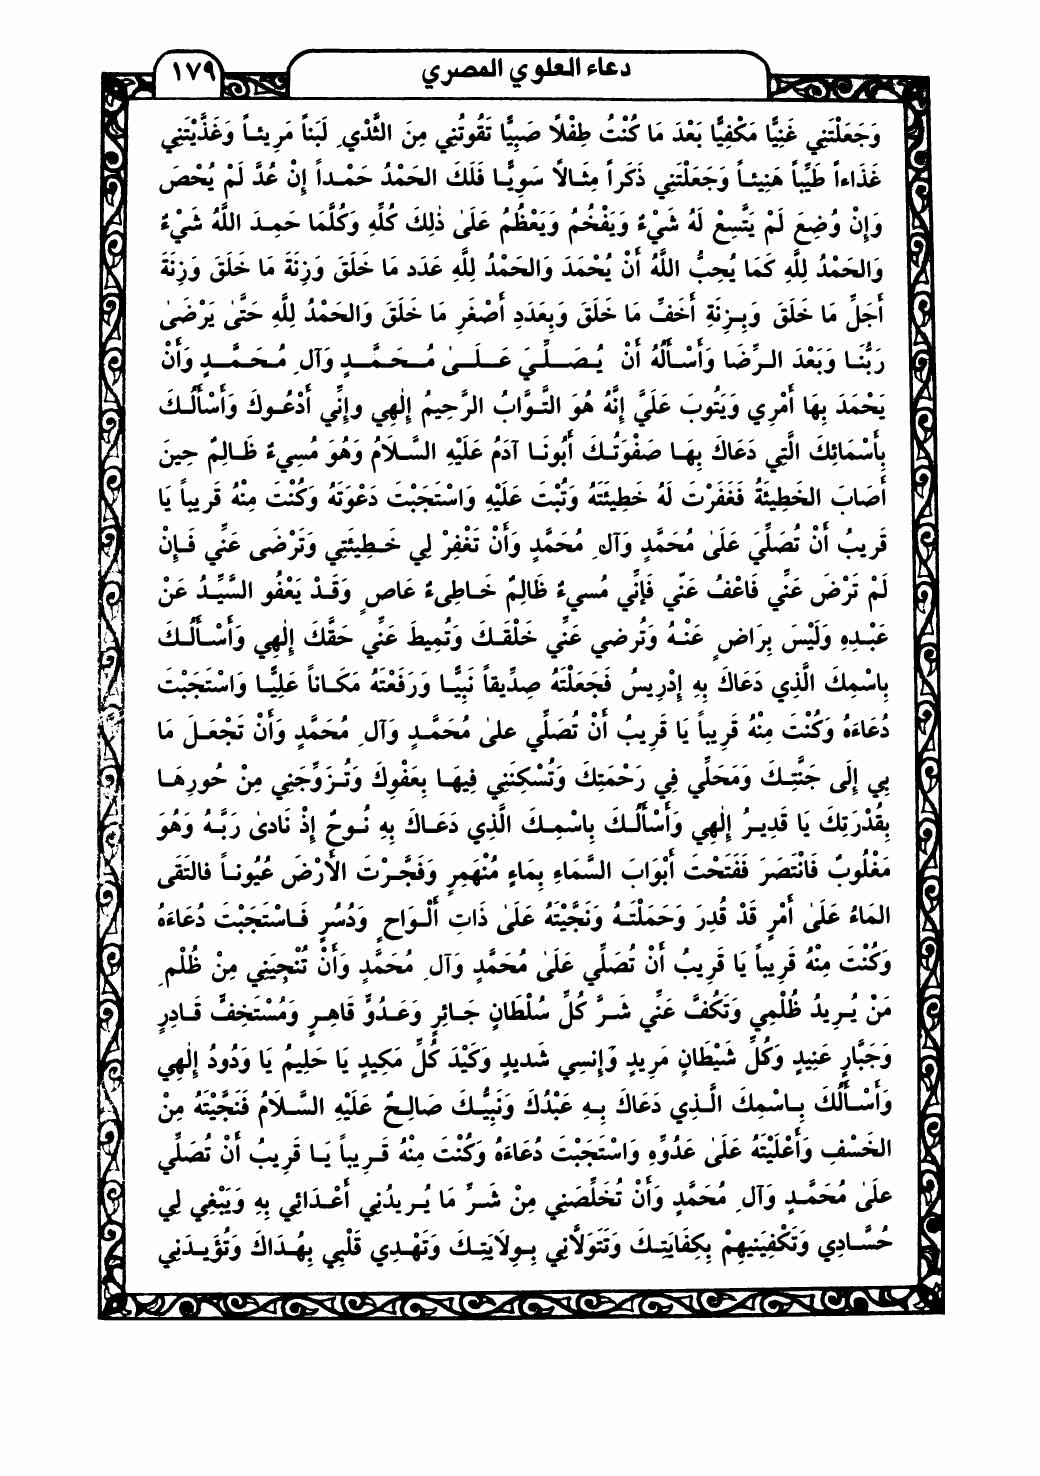 دعاء العلوي المصري
١٧٩
وَجَعَلْتَنِي غَنِيًّا مَكْفِيًّا بَعْدَ مَا كُنْتُ طِفْلاً صَبِيًّا تَقُوتُنِي مِنَ الثَّدْيِ لَبَناً مَرِيئاً وَغَذَّيْتَنِي
غَذَاءاً طَيِّباً هَنِيئاً وَجَعَلْتَنِي ذَكَراً مِثَالاً سَوِيًّا فَلَكَ الحَمْدُ حَمْداً إِنْ عُدَّ لَمْ يُحْصَ
وَإِنْ وُضِعَ لَمْ يَتَّسِعْ لَهُ شَيْءٌ وَيَفْخُمُ وَيَعْظُمُ عَلَىٰ ذٰلِكَ كُلِّهِ وَكُلَّمَا حَمِدَ اللَّهَ شَيْءٌ
وَالحَمْدُ لِلَّهِ كَمَا يُحِبُّ اللَّهُ أَنْ يُحْمَدَ وَالحَمْدُ لِلَّهِ عَدَد مَا خَلَقَ وَزِنَةَ مَا خَلَقَ وَزِنَةَ
أَجَلِّ مَا خَلَقَ وَبِزِنَةِ أَخَفِّ مَا خَلَقَ وَبِعَدَدِ أَصْغَرِ مَا خَلَقَ وَالحَمْدُ لِلَّهِ حَتَّىٰ يَرْضَىٰ
رَبُّنَا وَبَعْدَ الرِّضَا وَأَسْأَلُهُ أَنْ يُصَلِّيَ عَلَىٰ مُحَمَّدٍ وَآلِ مُحَمَّدٍ وَأَنْ
يَحْمَدَ بِهَا أَمْرِي وَيَتُوبَ عَلَيَّ إِنَّهُ هُوَ التَّوَّابُ الرَّحِيمُ إِلٰهِي وإِنِّي أَدْعُوكَ وَأَسْأَلُكَ
بِأَسْمَائِكَ الَّتِي دَعَاكَ بِهَا صَفْوَتُكَ أَبُونَا آدَمُ عَلَيْهِ السَّلَامُ وَهُوَ مُسِيءٌ ظَالِمٌ حِينَ
أَصَابَ الخَطِيئَةُ فَغَفَرْتَ لَهُ خَطِيئَتَهُ وَتُبْتَ عَلَيْهِ وَاسْتَجَبْتَ دَعْوَتَهُ وَكُنْتَ مِنْهُ قَرِيباً يَا
قَرِيبُ أَنْ تُصَلِّيَ عَلَىٰ مُحَمَّدٍ وَآلِ مُحَمَّدٍ وَأَنْ تَغْفِرْ لِي خَطِيئَتِي وَتَرْضَى عَنِّي فَإِنْ
لَمْ تَرْضَ عَنِّي فَاعْفُ عَنّي فَإِنِّي مُسيءٌ ظَالِمٌ خَاطِىءٌ عَاصٍ وَقَدْ يَعْفُو السَّيِّدُ عَنْ
عَبْدِهِ وَلَيْسَ بِرَاضٍ عَنْهُ وَتُرضي عَنِّي خَلْقَكَ وَتُمِيطَ عَنِّي حَقَّكَ إِلٰهِي وَأَسْأَلُكَ
بِاسْمِكَ الَّذِي دَعَاكَ بِهِ إِدْرِيسُ فَجَعَلْتَهُ صِدِّيقاً نَبِيًّا وَرَفَعْتَهُ مَكَاناً عَلِيًّا وَاسْتَجَبْتَ
دُعَاءَهُ وَكُنْتَ مِنْهُ قَرِيباً يَا قَرِيبُ أَنْ تُصَلِّي علىٰ مُحَمَّدٍ وَآلِ مُحَمَّدٍ وَأَنْ تَجْعَلَ مَا
بِي إِلَى جَنَّتِكَ وَمَحَلِّي فِي رَحْمَتِكَ وَتُسْكِنَنِي فِيهَا بِعَفْوِكَ وَتُزَوِّجَنِي مِنْ حُورِهَا
بِقُدْرَتِكَ يَا قَدِيرُ إِلٰهِي وَأَسْأَلُكَ بِاسْمِكَ الَّذِي دَعَاكَ بِهِ نُوحٌ إِذْ نَادىٰ رَبَّهُ وَهُوَ
مَغْلُوبٌ فَانْتَصَرَ فَفَتَحْتَ أَبْوَابَ السَّمَاءِ بِمَاءٍ مُنْهَمِرٍ وَفَجَّرْتَ الأَرْضَ عُيُوناً فالتَقَى
المَاءُ عَلَىٰ أَمْرٍ قَدْ قُدِرَ وَحَمَلْتَهُ وَنَجَّيْتَهُ عَلَىٰ ذَاتِ أَلْوَاحٍ وَدُسُرٍ فَاسْتَجَبْتَ دُعَاءَهُ
وَكُنْتَ مِنْهُ قَرِيباً يَا قَرِيبُ أَنْ تُصَلِّي عَلَىٰ مُحَمَّدٍ وَآلِ مُحَمَّدٍ وَأَنْ تُنْجِيَنِي مِنْ ظُلْمِ
مَنْ يُرِيدُ ظُلْمِي وَتَكُفَّ عَنِّي شَرَّ كُلِّ سُلْطَانٍ جَائِرٍ وَعَدُوٍّ قَاهِرٍ وَمُسْتَخِفٍّ قَادِرٍ
وَجَبَّارٍ عَنِيدٍ وَكُلِّ شَيْطَانٍ مَرِيدٍ وَإِنسِي شَديدٍ وَكَيْدَ كُلِّ مَكِيدٍ يَا حَلِيمُ يَا وَدُودُ إِلٰهِي
وَأَسْأَلُكَ بِاسْمِكَ الَّذِي دَعَاكَ بِهِ عَبْدُكَ وَنَبِيُّكَ صَالِحٌ عَلَيْهِ السَّلَامُ فَنَجَّيْتَهُ مِنْ
الخَسْفِ وَأَعْلَيْتَهُ عَلَىٰ عَدُوِّهِ وَاسْتَجَبْتَ دُعَاءَهُ وَكُنْتَ مِنْهُ قَرِيباً يَا قَرِيبُ أَنْ تُصَلِّي
علَىٰ مُحَمَّدٍ وَآلِ مُحَمَّدٍ وَأَنْ تُخَلِّصَنِي مِنْ شَرِّ مَا يُرِيدُنِي أَعْدَائِي بِهِ وَيَبْغِي لِي
حُسَّادِي وَتَكْفِيَنِيهِمْ بِكِفَايَتِكَ وَتَتَوَلَّانِي بِوِلَايَتِكَ وَتَهْدِي قَلْبِي بِهُدَاكَ وَتُؤَيِّدَنِي